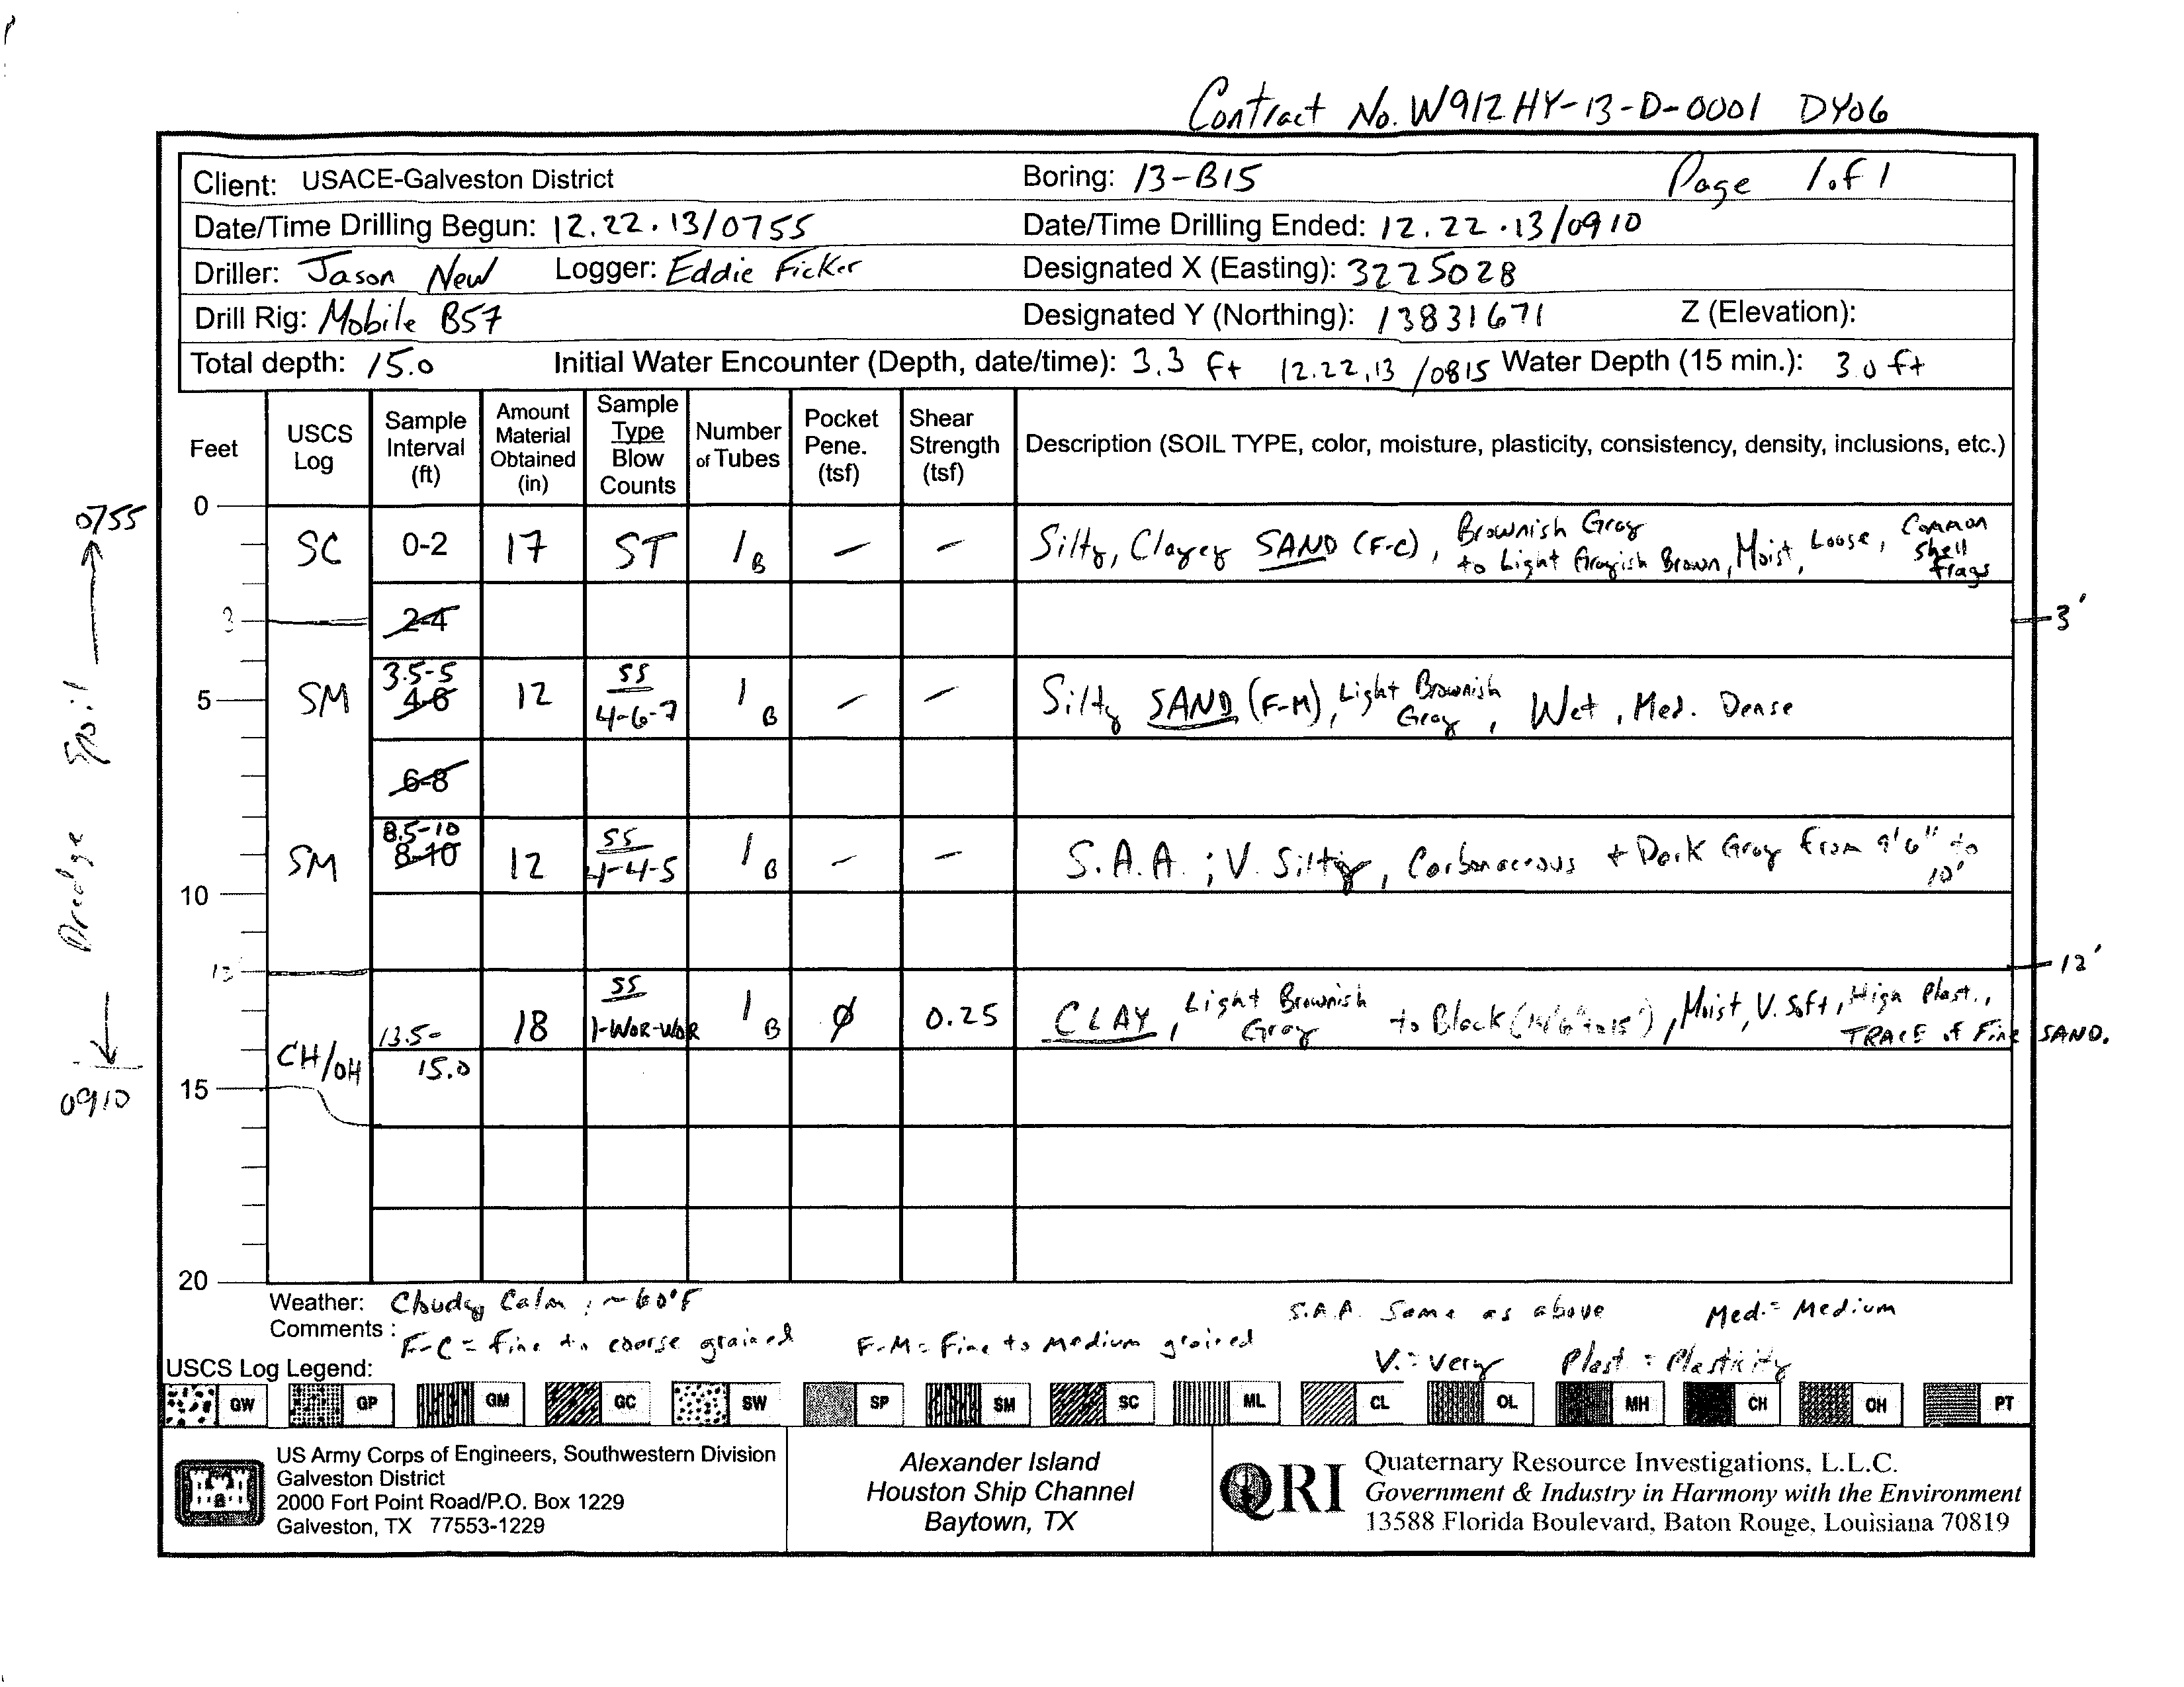 Contract No. W912HY-13-D-0001 DY06
Client: USACE-Galveston District Boring: 13-B15 Page 1 of 1
Date/Time Drilling Begun: 12.22.13/0755 Date/Time Drilling Ended: 12.22.13/0910
Driller: Jason New Logger: Eddie Ficker Designated X (Easting): 3225028
Drill Rig: Mobile B57 Designated Y (Northing): 13831671 Z (Elevation):
Total depth: 15.0 Initial Water Encounter (Depth, date/time): 3.3 ft 12.22.13 /0815 Water Depth (15 min.): 3.0 ft
Feet USCS Log Sample Interval (ft) Amount Material Obtained (in) Sample Type Blow Counts Number of Tubes Pocket Pene. (tsf) Shear Strength (tsf) Description (SOIL TYPE, color, moisture, plasticity, consistency, density, inclusions, etc.)
0755
0
SC 0-2 17 ST 1 B – – Silty, Clayey SAND (F-C), Brownish Gray to Light Grayish Brown, Moist, Loose, Common Shell frags
3 2-4 3'
3.5-5
5 SM 4-6 12 SS 4-6-7 1 B – – Silty SAND (F-M), Light Brownish Gray, Wet, Med. Dense
6-8
8.5-10
SM 8-10 12 SS 4-4-5 1 B – – S.A.A.; V. Silty, Carbonaceous + Dark Gray from 9'6" to 10'
10
12 12'
CH/OH 13.5-15.0 18 SS 1-WOR-WOR 1 B ∅ 0.25 CLAY, Light Brownish Gray to Black (14'6" to 15'), Moist, V. Soft, High Plast., TRACE of Fine SAND.
15
20
Dredge Spoil
0910
Weather: Cloudy Calm, ~60°F S.A.A. Same as above Med. = Medium
Comments: F-C = fine to coarse grained F-M = Fine to Medium grained V. = very Plast = Plasticity
USCS Log Legend:
GW GP GM GC SW SP SM SC ML CL OL MH CH OH PT
US Army Corps of Engineers, Southwestern Division
Galveston District
2000 Fort Point Road/P.O. Box 1229
Galveston, TX 77553-1229
Alexander Island
Houston Ship Channel
Baytown, TX
QRI
Quaternary Resource Investigations, L.L.C.
Government & Industry in Harmony with the Environment
13588 Florida Boulevard, Baton Rouge, Louisiana 70819